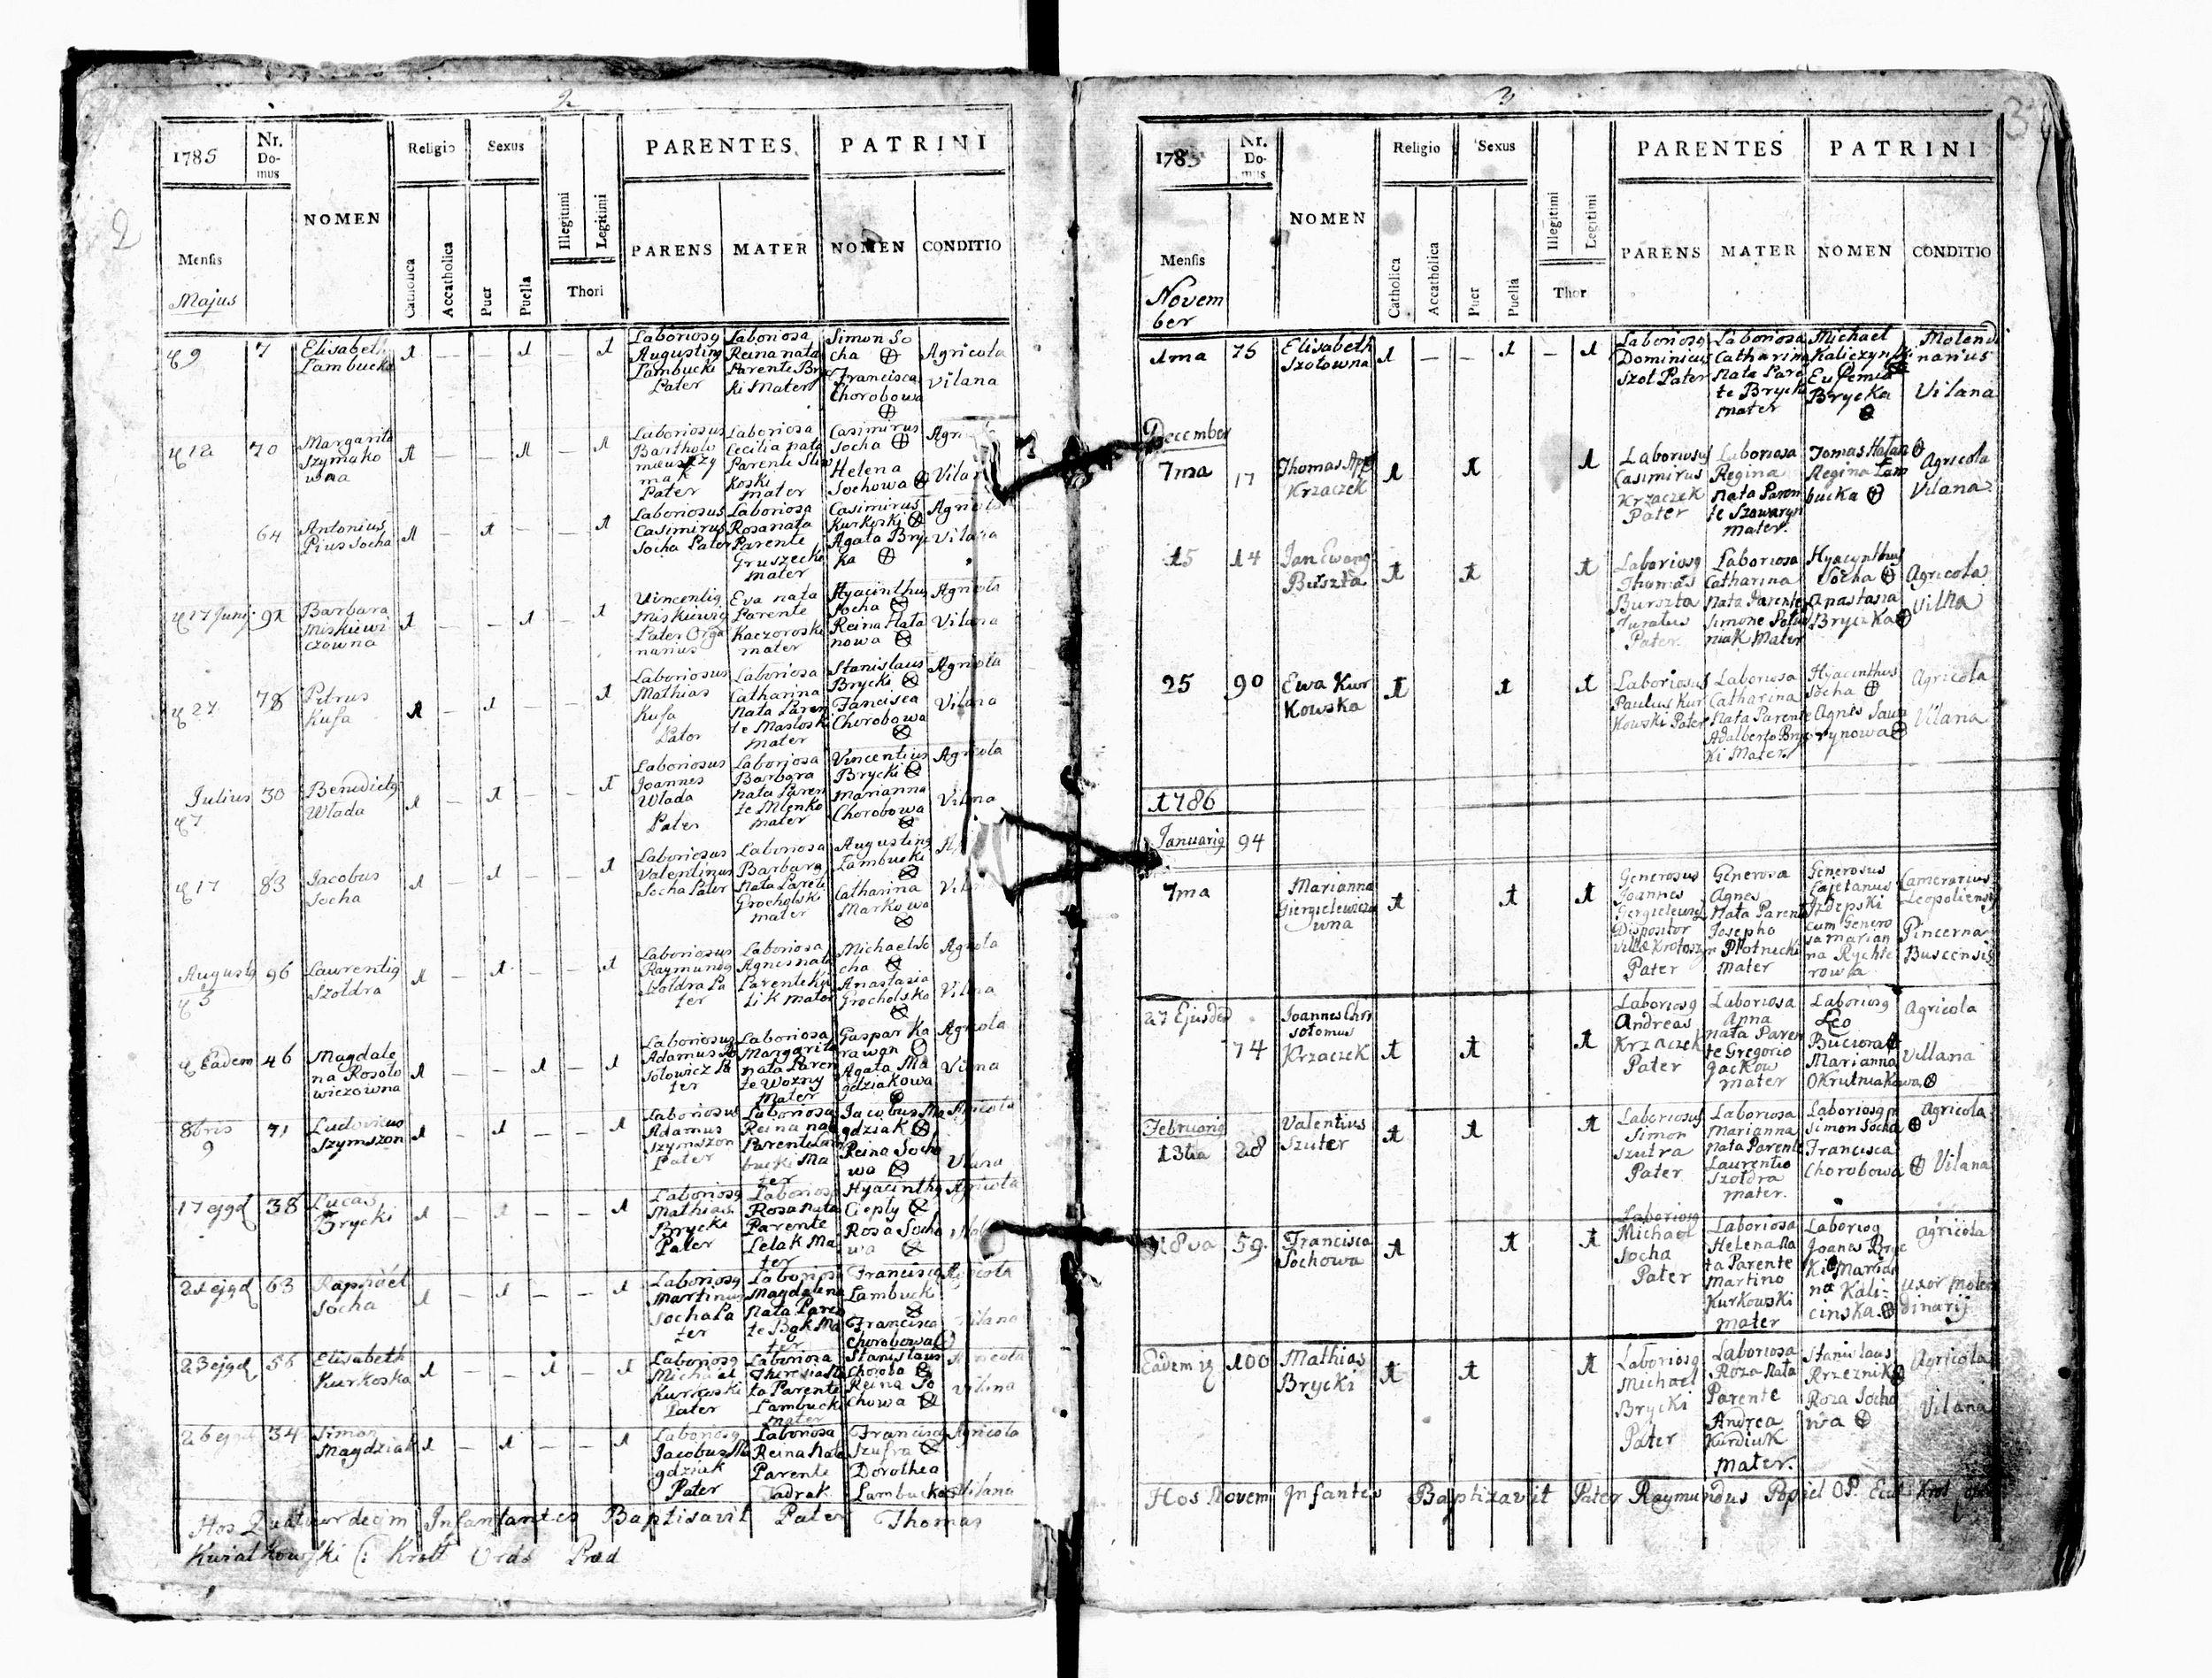 2
2
1785
Nr. Domus
NOMEN
Religio
Sexus
Illegitimi
Legitimi
Thori
PARENTES
PATRINI
Mensis
Majus
Catholica
Accatholica
Puer
Puella
PARENS
MATER
NOMEN
CONDITIO
9
7
Elisabeth
Lambucka
1 – – 1 – 1
Augustinq
Lambucki
Pater
Laboriosa
Reina nata
Parente Bry
ki Mater
Simon So
cha
Francisca
Chorobowa
Agricola
Vilana
12
70
Margarita
Szymako
wna
1 – – 1 – 1
Laboriosus
Bartholo
Pater
Laboriosa
Cecilia nata
Parente
mater
Casimirus
Socha
Helena
Sochowa
64
Antonius
Pius Socha
1 – 1 – 1
Laboriosus
Casimirus
Socha Pater
Laboriosa
Rosa nata
Parente
Gruszecki
mater
Casimirus
Kurkoski
Agata Bryc
ka
Agricola
Vilana
17 Junij
91
Barbara
Miskiewi
czowna
1 – – 1 – 1
Vincentiq
Miskiewiq
Pater Orga
narius
Eva nata
Parente
Kaczoroski
mater
Hyacinthus
Socha
Reina Hata
nowa
Agricola
Vilana
27
78
Petrus
Kusa
1 – 1 – – 1
Laboriosus
Mathias
Kusa
Pater
Laboriosa
Catharina
Nata Paren
te Masloski
mater
Stanislaus
Brycki
Francisca
Chorobowa
Agricola
Vilana
Julius
7
30
Benedictq
Wlada
1 – 1 – – 1
Laboriosus
Joannes
Wlada
Pater
Laboriosa
Barbara
nata Paren
te Mlenko
mater
Vincentius
Brycki
Marianna
Chorobowa
Agricola
Vilana
17
83
Jacobus
Socha
1 – 1 – – 1
Laboriosus
Valentinus
Socha Pater
Laboriosa
Barbara
Nata Parete
Grocholski
mater
Augustinq
Lambucki
Catharina
Markowa
Augustq
5
96
Laurentiq
Szoldra
1 – 1 – – 1
Laboriosus
Raymundq
Szoldra Pa
ter
Laboriosa
Agnes nata
mater
Michael So
cha
Anastasia
Grocholska
Agricola
Vilana
Eadem
46
Magdale
na Rosolo
wiczowna
1 – – 1 – 1
Laboriosus
Adamus Ro
solowicz Pa
ter
Laboriosa
Margarita
nata Paren
te Wozny
Mater
Gaspar Ka
rawan
Agata Ma
gdziakowa
Agricola
Vilana
8bris
9
71
Ludovicus
Szymszon
1 – 1 – – 1
Laboriosus
Adamus
Szymszon
Pater
Laboriosa
Reina nata
Parente Lam
bucki Ma
ter
Jacobus Ma
gdziak
Reina Socho
wa
Agricola
Vilana
17 ejqd
38
Lucas
Brycki
1 – 1 – – 1
Laboriosq
Mathias
Brycki
Pater
Laboriosa
Rosa Nata
Parente
Lelak Ma
ter
Hyacinthq
Cieply
Rosa Socho
wa
Agricola
21 ejqd
63
Raphael
Socha
1 – 1 – – 1
Laboriosq
Martinus
Socha Pa
ter
Laboriosa
Magdalena
Nata Paren
te Bąk Ma
ter
Franciscq
Lambucki
Francisca
Chorobowa
Agricola
Vilana
23 ejqd
56
Elisabeth
Kurkoska
1 – – 1 – 1
Laboriosq
Michael
Kurkoski
Pater
Laboriosa
Theresia Na
ta Parente
Lambucki
mater
Stanislaus
Choroba
Reina So
chowa
Agricola
Vilana
26 ejqd
34
Simon
Magdziak
1 – 1 – – 1
Laboriosq
Jacobus Ma
gdziak
Pater
Laboriosa
Reina Nata
Parente
Jadrak
Franciscq
Szufra
Dorothea
Lambucka
Agricola
Vilana
Hos Quatuordecim Infantes Baptisavit Pater Thomas
Kwiatkowski
3
3
1785
Nr. Domus
NOMEN
Religio
Sexus
Illegitimi
Legitimi
Thor
PARENTES
PATRINI
Mensis
Novem
ber
Catholica
Accatholica
Puer
Puella
PARENS
MATER
NOMEN
CONDITIO
1ma
75
Elisabeth
Szolowna
1 – – 1 – 1
Laboriosq
Dominicus
Szol Pater
Laboriosa
Catharina
Nata Paren
te Brycki
mater
Michael
Kaliczynski
Eufemia
Brycka
Molendi
narius
Vilana
December
7ma
17
Thomas App
Krzaczek
1 1 1
Laboriosus
Casimirus
Krzaczek
Pater
Laboriosa
Regina
Nata Paren
te Szawaryn
mater.
Tomas Hatan
Regina Lam
bucka
Agricola
Vilana
15
14
Jan Ewang
Burszta
1 1 1
Laboriosq
Thomas
Burszta
Juratus
Pater
Laboriosa
Catharina
Nata Parente
Simone
Mater
Hyacynthus
Socha
Anastasia
Brycka
Agricola
Vilna
25
90
Ewa Kur
Kowska
1 1 1
Laboriosus
Paulus Kur
Kowski Pater
Laboriosa
Catharina
Nata Parente
Adalberto Bryc
Ki Mater
Hyacinthus
Socha
Agnes Sawa
rynowa
Agricola
Vilana
1786
Januariq
94
7ma
Marianna
Giergielewiczo
wna
1 1 1
Generosus
Joannes
Gergielewicz
Dispositor
Villae Krotoszyn
Pater
Generosa
Agnes
Nata Parente
Josepho
Plotnicki
Mater
Generosus
Cajetanus
Izdepski
cum Genero
sa Marian
na Rychte
rowa
Camerarius
Leopoliensis
Pincerna
Buscensis
27 Ejusdem
74
Joannes Chri
sotomus
Krzaczek
1 1 1
Laboriosq
Andreas
Krzaczek
Pater
Laboriosa
Anna
nata Paren
te Gregorio
Gackow
mater
Laboriosq
Leo
Marianna
Okrutniakowa
Agricola
Villana
Februariq
13tia
28
Valentius
Szuter
1 1 1
Laboriosus
Simon
Szutra
Pater
Laboriosa
Marianna
Nata Parente
Laurentio
Szoldra
mater.
Simon Socha
Francisca
Chorobowa
Agricola
Vilana
18va
59
Francisca
Sochowa
1 1 1
Laboriosq
Michael
Socha
Pater
Laboriosa
Helena Na
ta Parente
Martino
Kurkowski
mater
Laboriosq
Joanes Bryc
Ki Marian
na Kali-
cinska
Agricola
Uxor Molen
dinarij
Eadem
100
Mathias
Brycki
1 1 1
Laboriosq
Michael
Brycki
Pater
Laboriosa
Roza Nata
Parente
Andrea
Kurdiuk
Mater.
Stanislaus
Krzeznik
Roza Socho
wa
Agricola
Vilana
Hos Novem Infantes Baptizavit Pater Raymundus Popiel